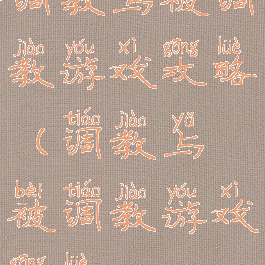 调教与被调
jiào yóu xì gōng lüè
教游戏攻略
tiáo jiào yǔ
（调教与
bèi tiáo jiào yóu xì
被调教游戏
gōng lüè